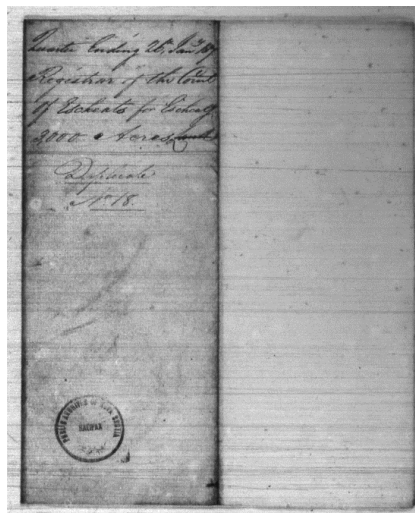 Quarter Ending 26th Jany
Registrar of the Court
of Escheats for Escheat
2000 Acres
Duplicate
No 18.
PUBLIC ARCHIVES OF NOVA SCOTIA
HALIFAX